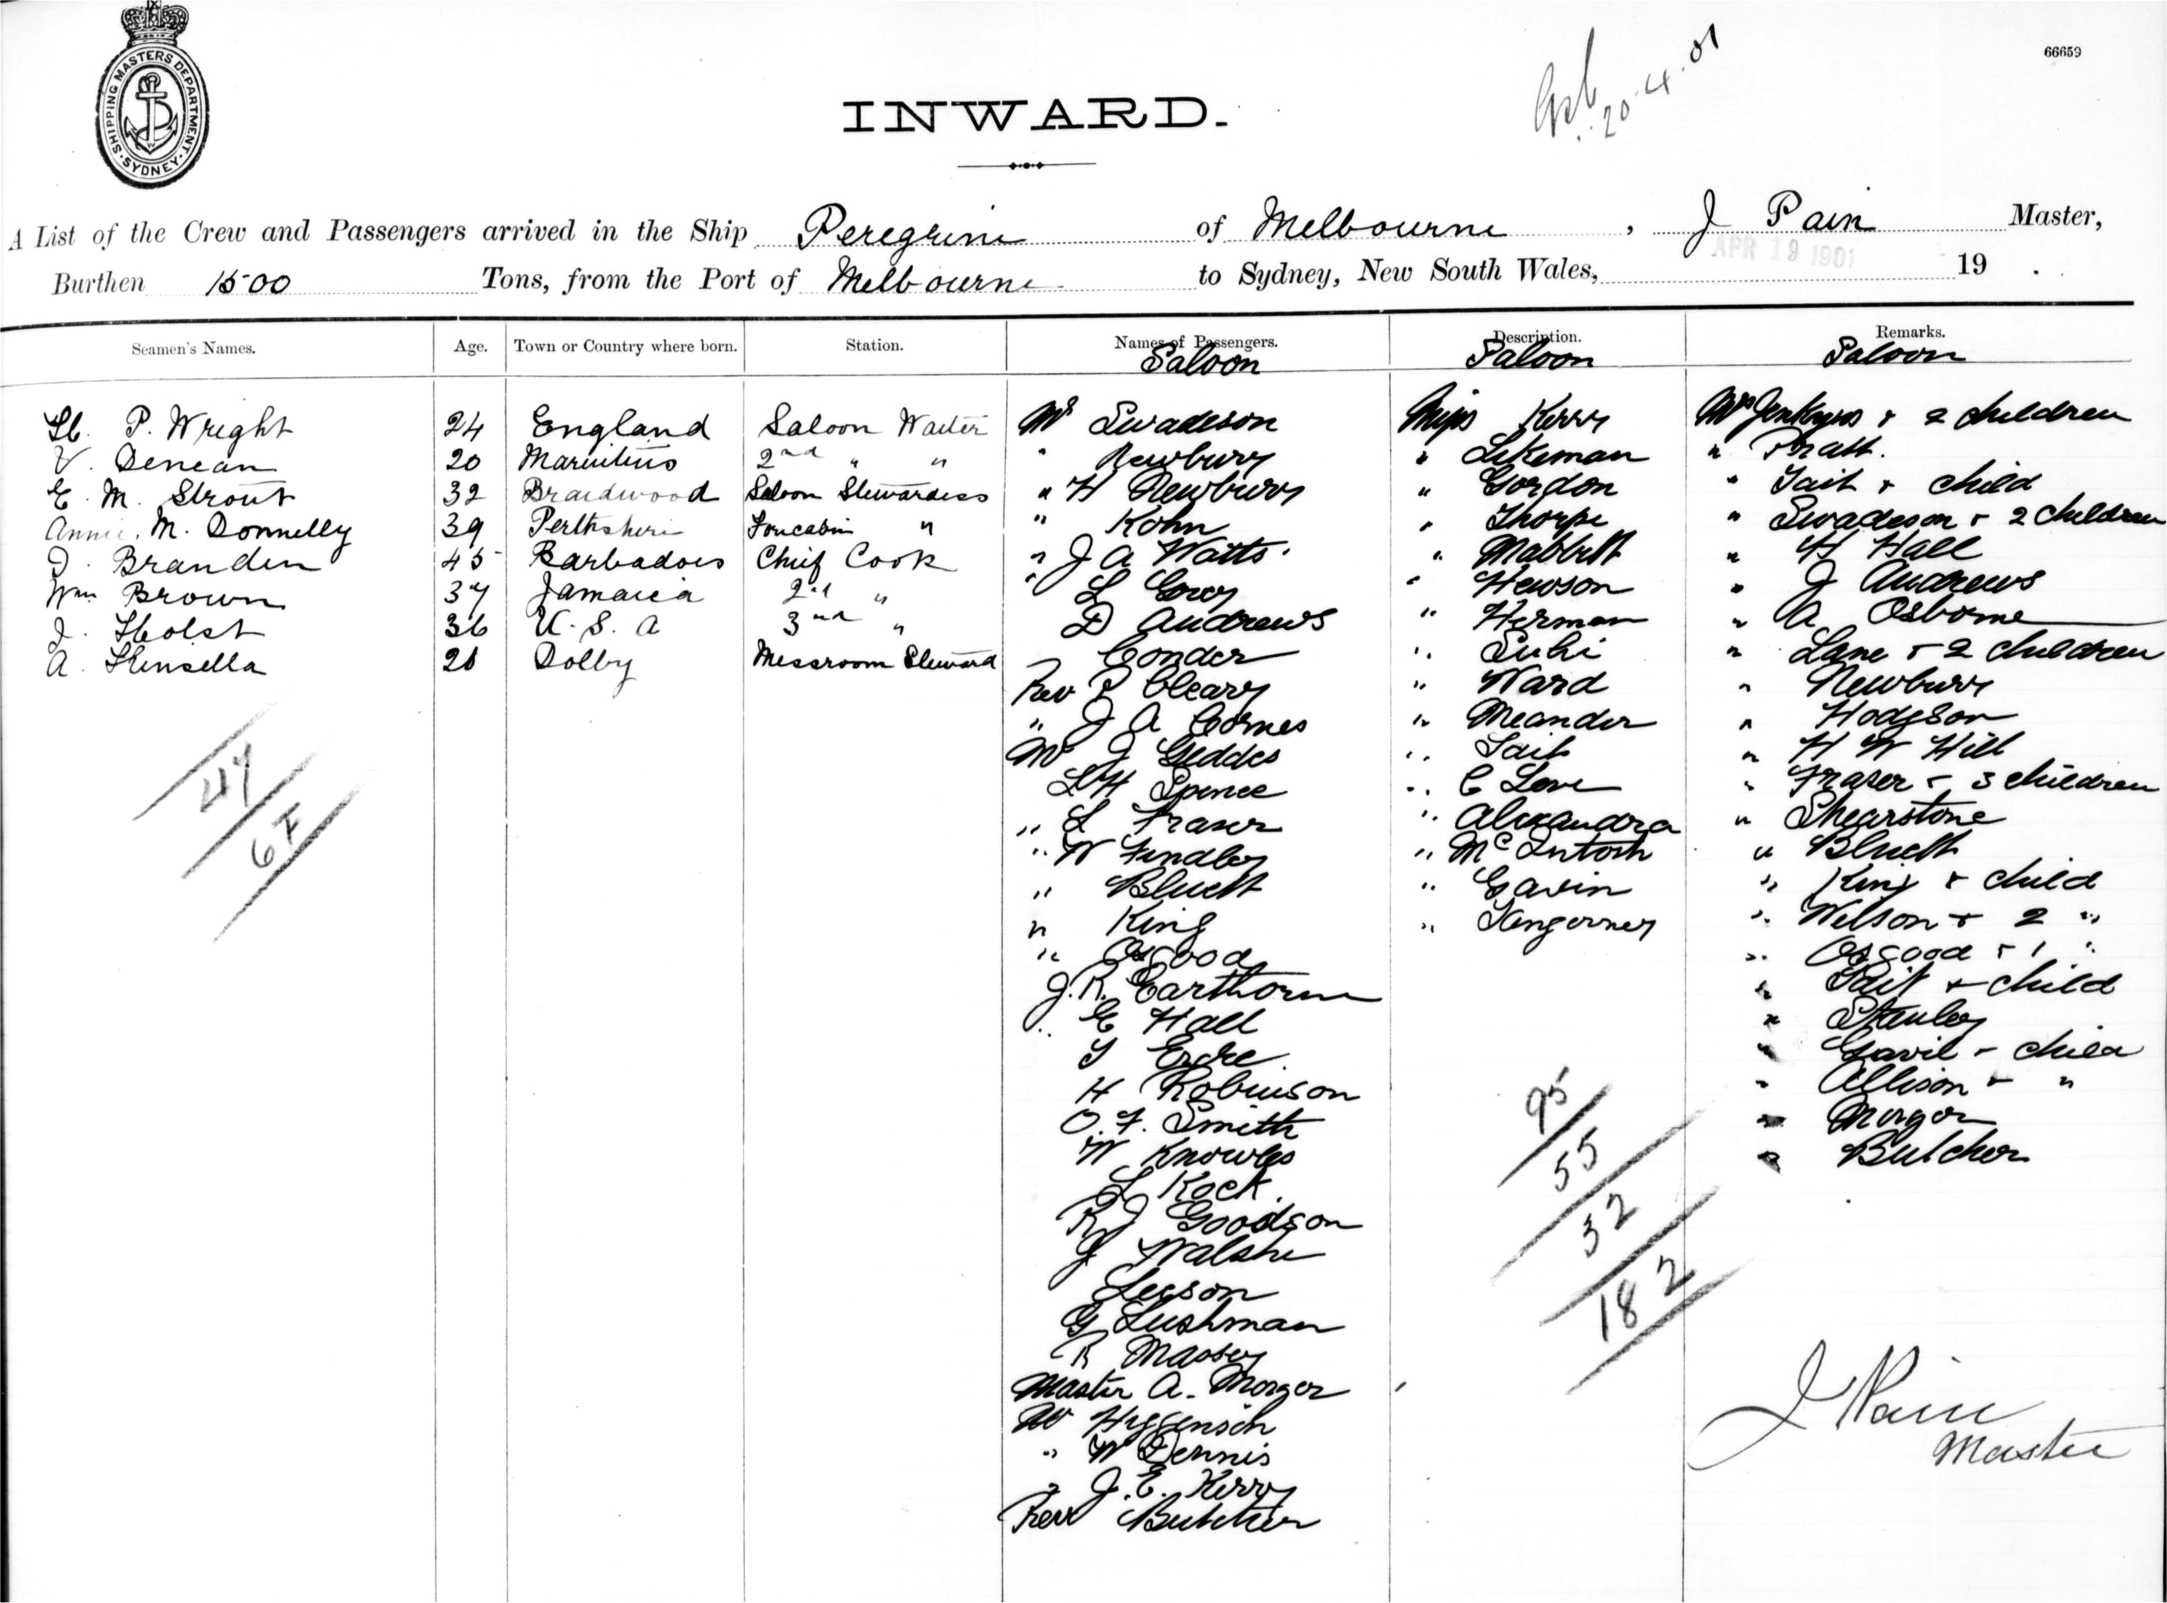 SHIPPING MASTERS DEPARTMENT. SYDNEY
66659
20.4.01
INWARD.
A List of the Crew and Passengers arrived in the Ship Peregrine of Melbourne, J Pain Master,
APR 19 1901
Burthen 1500 Tons, from the Port of Melbourne to Sydney, New South Wales, 19 .
Seamen's Names. Age. Town or Country where born. Station. Names of Passengers. Description. Remarks.
Saloon Saloon Saloon
P. Wright 24 England Saloon Waiter
V. Denean 20 Mauritius 2nd " "
E. M. Strout 32 Braidwood Saloon Stewardess
Annie. M. Donnelly 39 Perthshire Forecabin "
J. Branden 45 Barbadoes Chief Cook
Wm Brown 37 Jamaica 2nd "
J. Holst 36 U. S. A 3rd "
A. Kinsella 28 Dolby Messroom Steward
47
67
Mr Swadeson
" Newbury
" H Newbury
" Kohn
" J A Watts
" L Levy
D Andrews
Conder
Rev P Cleary
" J A Cornes
Mr J Geddes
L H Spence
" L Fraser
" W Findley
" Bluett
" King
" Osgood
J. R. Earthorne
" E Hall
H Robinson
O. F. Smith
W Knowles
L Kock
R J Goodson
J Walshe
Leeson
G Lushman
R Massey
Master A. Morgor
Mr Higgensen
" W Dennis
" J. E. Kerry
Rev Butcher
Miss Kerry
" Lekeman
" Gordon
" Thorpe
" Mabbitt
" Hewson
" Herman
" Ward
" Meander
" Tait
" C Love
" Alexandra
" McIntosh
" Gavin
95
55
32
182
Mrs Jenkyns & 2 children
" Pratt.
" Tait & child
" Swadeson & 2 children
" H Hall
" J Andrews
" A Osborne
" Lane & 2 children
" Newbury
" Hodgson
" H W Hill
" Fraser & 3 children
" Shearstone
" Bluett
" King & child
" Wilson & 2 "
" Osgood & 1 "
" Tait & child
" Stanley
" Gavil & child
" Allison & "
" Morgor
" Butcher
J Pain
Master